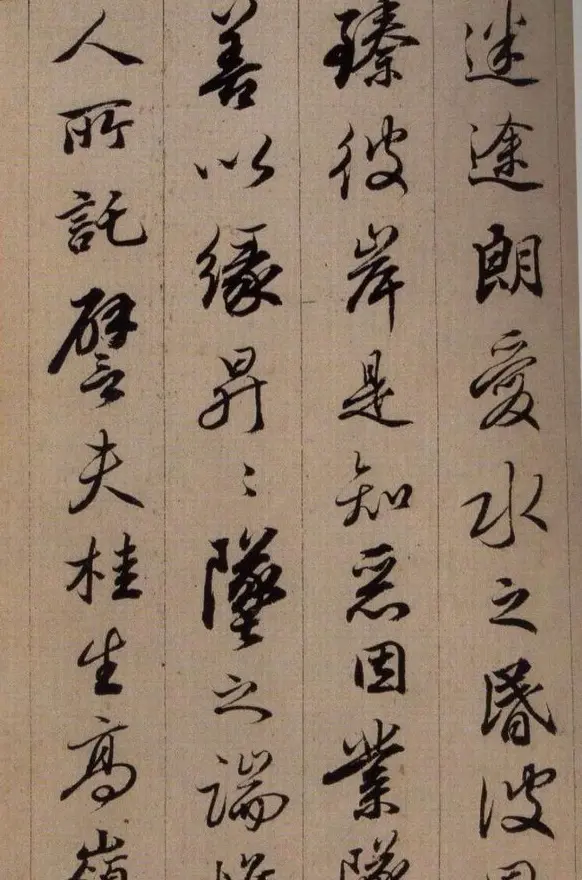 迷途朗愛水之昬波同
臻彼岸是知惡因業墜
善以緣昇〻墜之端
人所託譬夫桂生高嶺